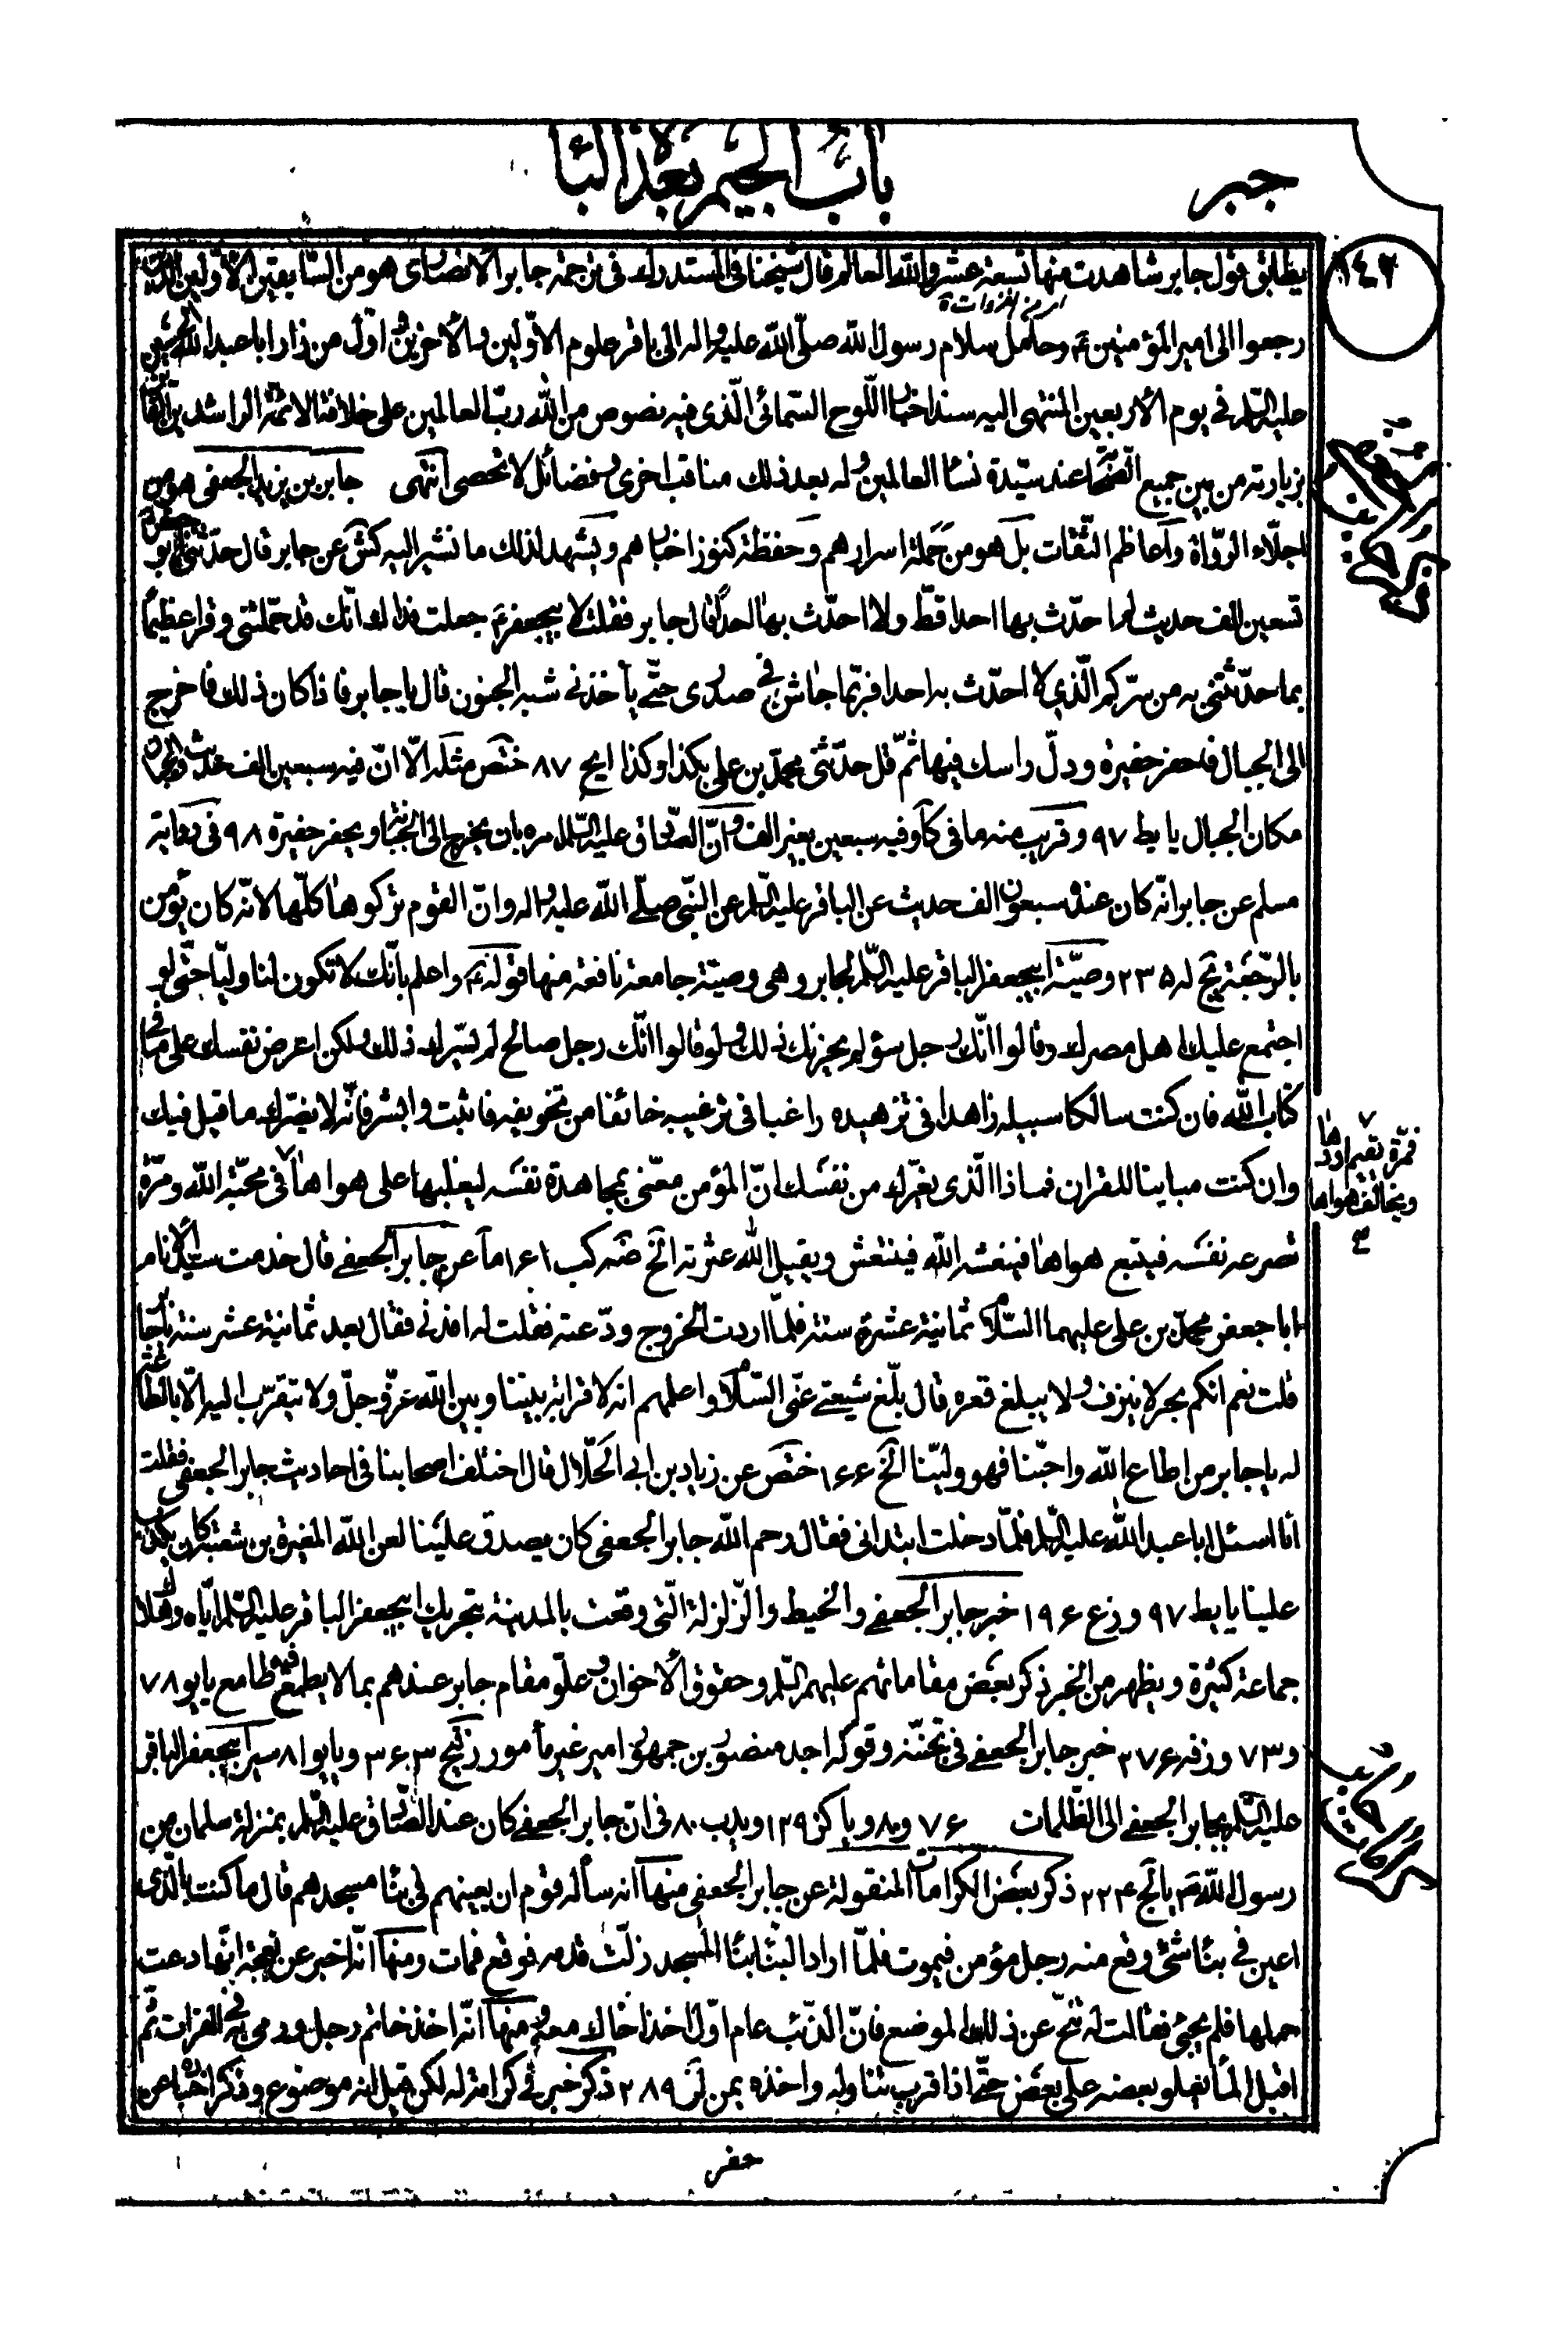 جبر
باب الجيم بعد البا
١٤٢
يطابق قول جابر شاهدت منها تسعة عشر والله العالم قال شيخنا في المستدرك في ترجمة جابر الانصاري هو من السابقين الاولين الذين
اى من الغزوات
رجعوا الى امير المؤمنين ع وحامل سلام رسول الله صلّى الله عليه واله الى باقر علوم الاوّلين والاخرين واوّل من زار ابا عبد الله الحسين
عليه السّلم في يوم الاربعين المنتهى اليه سند اخبار اللّوح السّمائى الّذى فيه نصوص من الله ربّ العالمين على خلافة الائمّة الراشدين الفائز
بزيارته من بين جميع الصّحابة عند سيّدة نساء العالمين وله بعد ذلك مناقب اخرى وفضائل لا تحصى انتهى جابر بن يزيد الجعفى هو من
اجلّاء الروّاة واعاظم الثّقات بل هو من حملة اسرارهم وحفظة كنوز اخبارهم ويشهد لذلك ما نشير اليه كش عن جابر قال حدّثنى ابو جعفر ع
تسعين الف حديث لم احدّث بها احدا قطّ ولا احدّث بها احدا قال جابر فقلت لابيجعفر ع جعلت فداك انّك قد حمّلتنى وقرا عظيما
بما حدّثتنى به من سرّكم الّذي لا احدّث به احدا فربّما جاش في صدرى حتّى يأخذني شبه الجنون قال يا جابر فاذا كان ذلك فاخرج
الى الجبال فاحفر حفيرة ودلّ راسك فيها ثمّ قل حدّثنى محمّد بن علي بكذا وكذا ايح ٨٧ ختص مثله الّا انّ فيه سبعين الف حديث والجبان
مكان الجبال يا يط ٩٧ وقريب منه ما في كا وفيه سبعين بغير الف وانّ الصّادق عليه السّلم امره بان يخرج الى الجبان ويحفر حفيرة ٩٨ فى رواية
مسلم عن جابر انّه كان عنده سبعون الف حديث عن الباقر عليه السّلم عن النّبي صلّى الله عليه واله وانّ القوم تركوها كلّها لانّه كان يؤمن
بالرّجعة يج له ٢٣٥ وصيّة ابيجعفر الباقر عليه السّلم لجابر وهى وصيّة جامعة نافعة منها قوله ع واعلم بانّك لا تكون لنا وليّا حتّى لو
اجتمع عليك اهل مصرك وقالوا انّك رجل سوء لم يحزنك ذلك ولو قالوا انّك رجل صالح لم يسرّك ذلك ولكن اعرض نفسك على ما في
كتاب الله فان كنت سالكا سبيله زاهدا في تزهيده راغبا فى ترغيبه خائفا من تخويفه فاثبت وابشر فانّه لا يضرّك ما قيل فيك
وان كنت مباينا للقران فماذا الّذى يغرّك من نفسك انّ المؤمن معنّى بمجاهدة نفسه ليغلبها على هواها ٧ في محبّة الله ومرّة
٧
فمرّة يقيم اودها
ويخالف هواها
تصرعه نفسه فيتبع هواها فينعشه الله فينتعش ويقيل الله عثرته الخ ضه كب ١٦١ ما عن جابر الجعفي قال خدمت سيّد الانام
ابا جعفر محمّد بن على عليهما السّلام ثمانية عشرة سنة فلمّا اردت الخروج ودّعته فقلت له افدني فقال بعد ثمانية عشر سنة يا جابر
قلت نعم انّكم بحر لا ينزف ولا يبلغ قعره قال بلّغ شيعتي عنّى السّلام واعلمهم انّه لا قرابة بيننا وبين الله عزّ وجلّ ولا يتقرّب اليه الّا بالطاعة
له يا جابر من اطاع الله واحبّنا فهو وليّنا الخ ١٦٦ ختص عن زياد بن ابي الحلّال قال اختلف اصحابنا فى احاديث جابر الجعفى فقلت
انا اسئل ابا عبد الله عليه السّلم فلمّا دخلت ابتدانى فقال رحم الله جابر الجعفى كان يصدق علينا لعن الله المغيرة بن شعبة كان يكذب
علينا يا يط ٩٧ وزع ١٩٦ خبر جابر الجعفي والخيط والزّلزلة الّتى وقعت بالمدينة بتحريك ابيجعفر الباقر عليه السّلم ايّاه وهلاك
جماعة كثيرة ويظهر من الخبر ذكر بعض مقاماتهم عليهم السّلم وحقوق الاخوان وعلوّ مقام جابر عندهم بما لا يطمع فيه طامع يا يو ٧٨
و٧٣ وزفه ٢٧٦ خبر جابر الجعفي في تجنّنه وقوله اجد منصور بن جمهور امير غير مأمور زكج ٣٦٣ ويا يو ٨١ سير ابيجعفر الباقر
عليه السّلم بجابر الجعفي الى الظّلمات ٧٦ و٨٠ ويا كز ١٣٩ ويد يب ٨٠ فى انّ جابر الجعفي كان عند الصّادق عليه السّلم بمنزلة سلمان من
رسول الله ص يا لج ٢٢٤ ذكر بعض الكرامات المنقولة عن جابر الجعفى منها انه ساله قوم ان يعينهم في بناء مسجدهم قال ما كنت بالّذى
اعين في بناء شئ وقع منه رجل مؤمن فيموت فلمّا اراد البناء لبناء المسجد زلّت قدمه فوقع فمات ومنها انّه اخبر عن نعجة انّها دعت
حملها فلم يجئ فقالت له تنحّ عن ذلك الموضع فانّ الذّئب عام اوّل اخذ اخاك معه ومنها انّه اخذ خاتم رجل ورمى به في الفرات ثمّ
اقبل الماء يعلو بعضه على بعض حتّى اذا قرب تناوله واخذه يمن لز ٢٨٩ ذكر خبر في كرامة له لكن قيل انه موضوع وذكر اخبار عن
جعفر